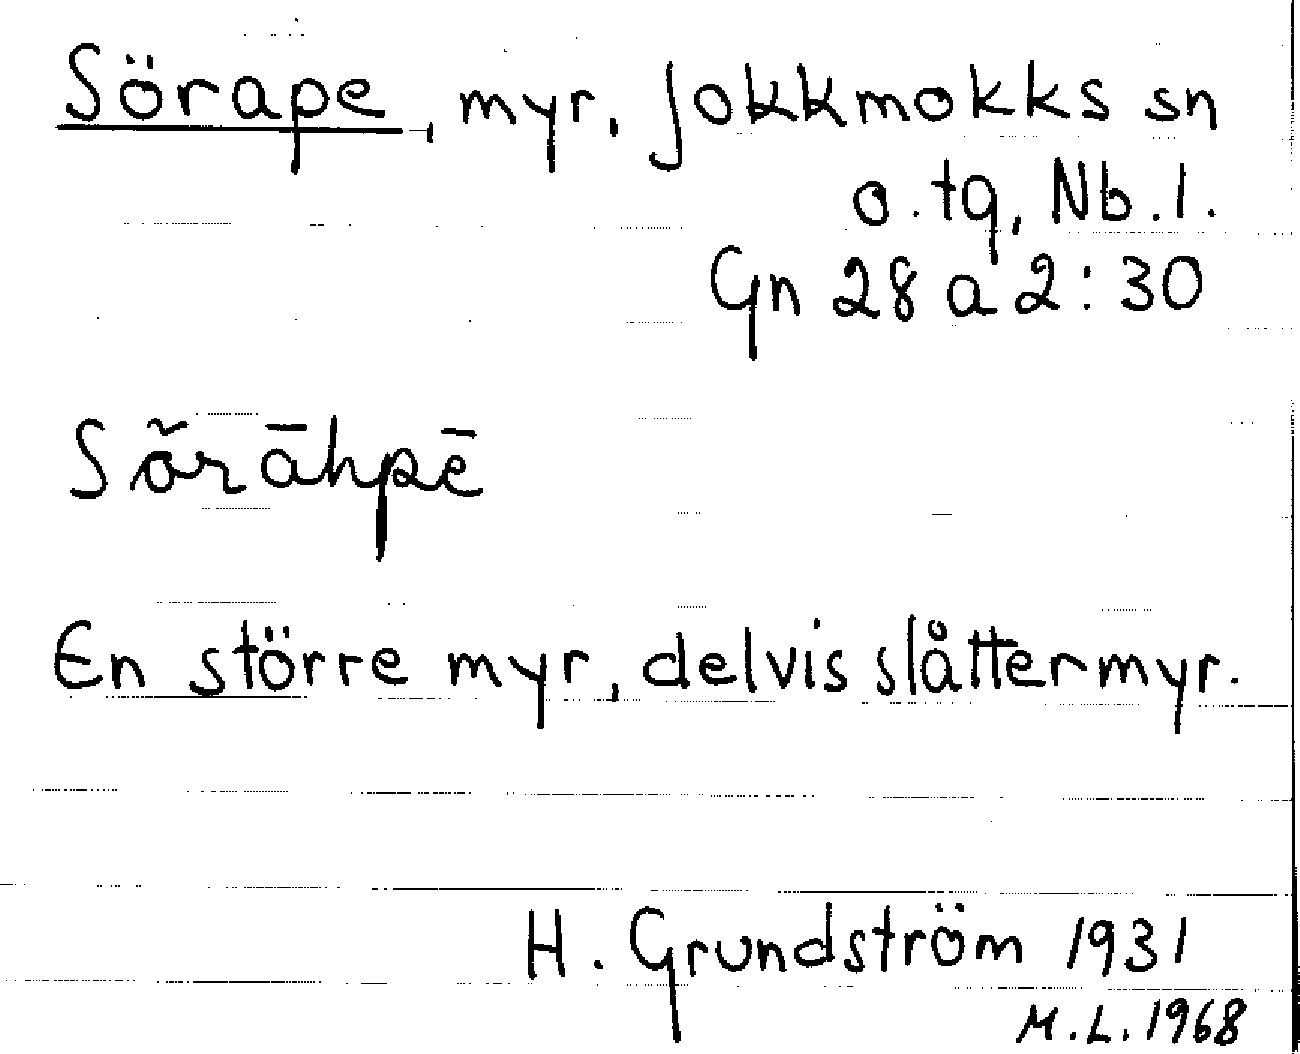 Sörape, myr, Jokkmokks sn
o. tg, Nb. l.
Gn 28 a 2:30
Så̆rāhpē
En större myr, delvis slåttermyr.
H. Grundström 1931
M.L. 1968